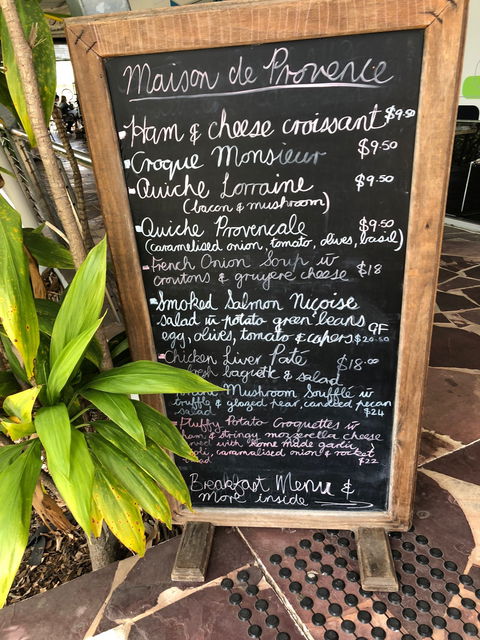 Maison de Provence
Ham & cheese croissant $9.50
Croque Monsieur $9.50
Quiche Lorraine $9.50
(bacon & mushroom)
Quiche Provencale $9.50
(caramelised onion, tomato, olives, basil)
French Onion Soup w
croutons & gruyere cheese $18
Smoked Salmon Niçoise
salad w potato green beans GF
egg, olives, tomato & capers $20.50
Chicken Liver Paté $18.00
fresh baguette & salad
Mushroom Soufflé w
truffle & glazed pear, candied pecan
salad $24
Fluffy Potato Croquettes w
ham & stringy mozzerella cheese
served with home made garlic
caramalised onion & rocket
$22
Breakfast Menu &
more inside